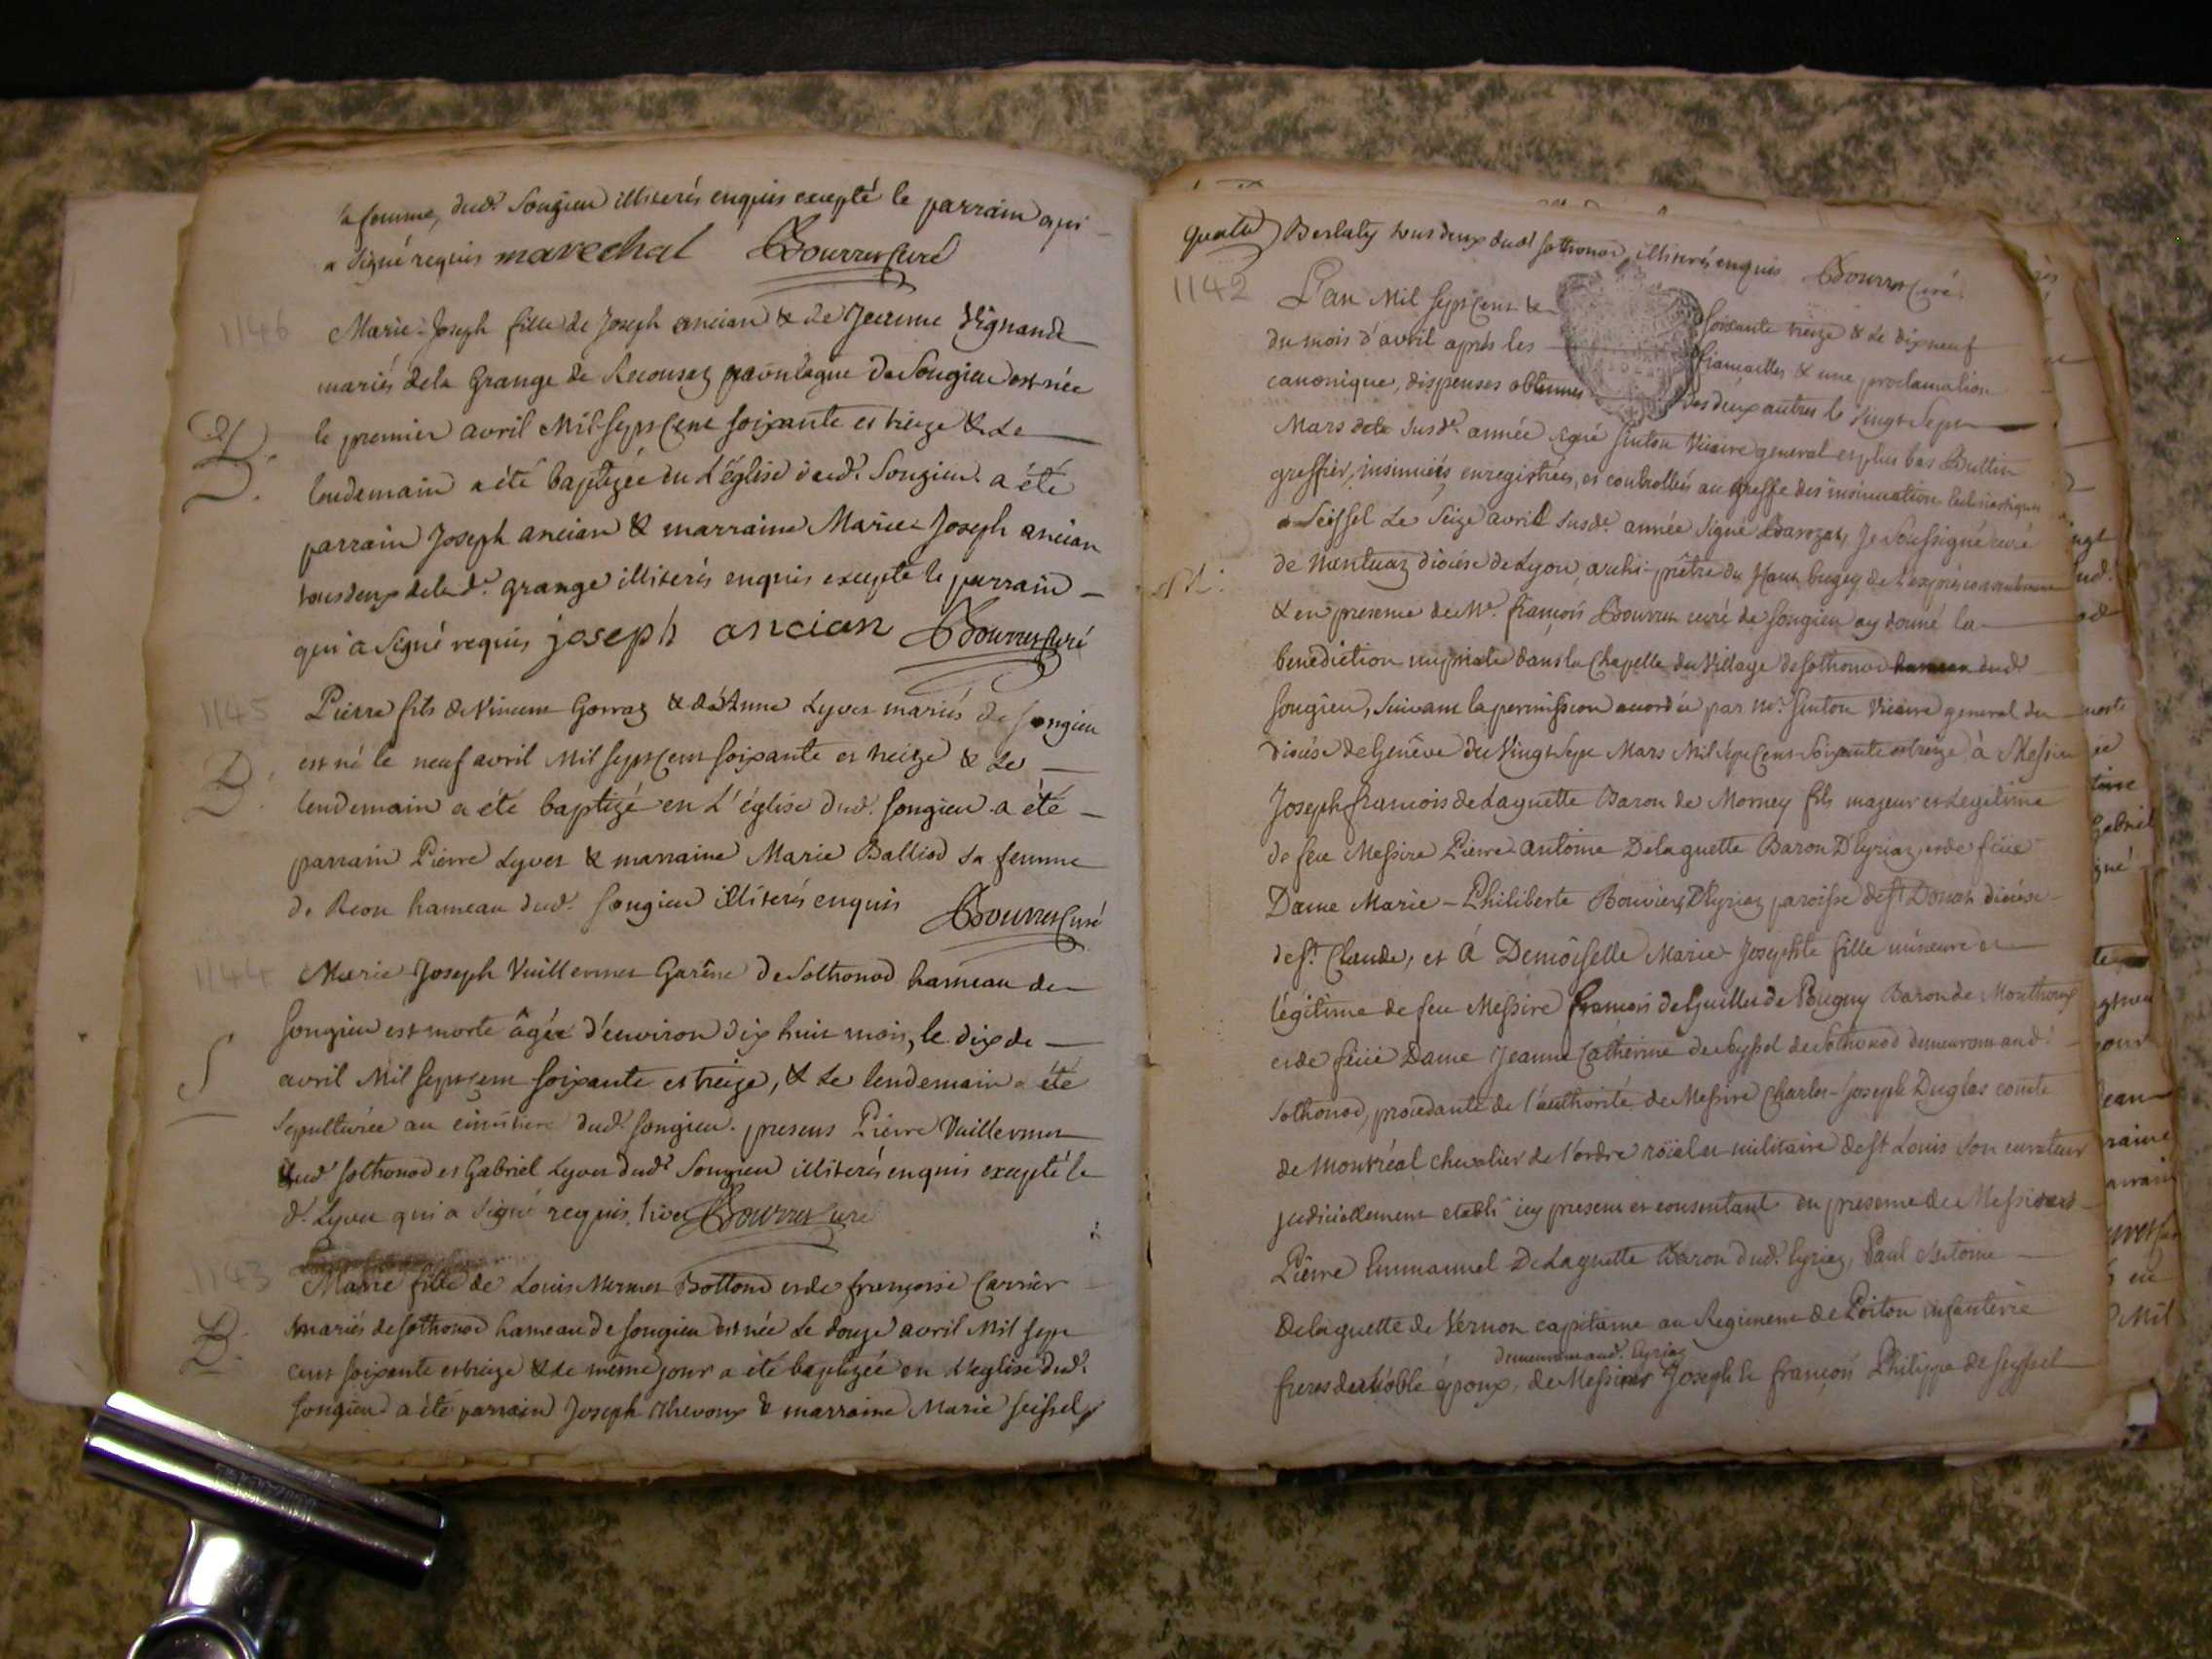 sa femme, dud. Songieu illiterés enquis excepté le parrain qui
a signé requis marechal Bourret Curé
1146 Marie-Joseph fille de Joseph ancian & de Jeanne Vignand
mariés dela Grange de de Songieu est née
B. le premier avril Mil Sept Cent soixante et treize & Le
lendemain a été baptizée en L'église dud. Songieu a été
parrain Joseph ancian & marraine Marie Joseph ancian
tous deux delad. grange illiterés enquis excepté le parrain
qui a signé requis joseph ancian Bourret Curé
1145 Pierre fils de Vincent Gorraz & d'Anne Lyvet mariés de Songieu
est né le neuf avril Mil Sept Cent soixante et treize & Le
B. lendemain a été baptizé en L'église dud. Songieu a été
parrain Pierre Lyvet & marraine Marie Balliod sa femme
de Reon hameau dud. Songieu illiterés enquis Bourret Curé
1144 Marie Joseph Vuillermet Garêne de Sothonod hameau de
Songieu est morte âgée d'environ dix huit mois, le dix de
S avril Mil Sept Cent soixante et treize, & Le lendemain a été
sepulturée au cimetiere dud. Songieu. presens Pierre Vuillermet
dud Sothonod et Gabriel Lyvet dud. Songieu illiterés enquis excepté le
d. Lyvet qui a signé requis. Livet Bourret Curé
1143 Marie fille de Louis Mermet Bottond et de françoise Carrier
B. mariés de Sothonod hameau de Songieu est née Le douze avril Mil Sept
cent soixante et treize & Le même jour a été baptizée en L'eglise dud.
Songieu a été parrain Joseph Thevoux & marraine Marie Seissel
Berlaty tous deux dud Sothonod, illiterés enquis Bourret Curé
1142 L'an Mil Sept Cent & Soixante treize & Le dix neuf
du mois d'avril après les fiançailles & une proclamation
canonique, dispenses obtenues des deux autres le Vingt Sept
Mars dela susd. année signé Sinton Vicaire general et plus bas Buttin
greffier, insinuées enregistrées, et controllées au greffe des insinuation Ecclesiastiques
a Seissel Le Seize avril susd. année signé Je Soussigné curé
de Nantuaz diocése de Lyon, archi-prêtre du Haut bugey de l'exprès consentement
& en presence de Mr. françois Bourret curé de Songieu ay donné la
benediction nuptiale dans la Chapelle du Village de Sothonod hameau dud
Songieu, suivant la permission accordée par Mr. Sinton Vicaire general du
diocése de Genêve du Vingt Sept Mars Mil Sept Cent Soixante et treize à Messire
Joseph françois de Laguette Baron de Mornay fils majeur et Legitime
de feu Messire Pierre Antoine Delaguette Baron D'hyriaz, et de feüe
Dame Marie-Philiberte Bouvier, D'hyriaz paroisse de St Donat diocése
de St. Claude, et à Demoiselle Marie-Josephte fille mineure et
légitime de feu Messire françois de Guillet de Pougny Baron de Monthoux
et de feüe Dame Jeanne Catherine de Seyssel de Sothonod demeurant aud.
Sothonod, procedante de l'authorité de Messire Charles-Joseph Duglas comte
de Montréal chevalier de l'ordre roïal et militaire de St Louis Son curateur
judiciellement etabli icy present et consentant en presence de Messieurs
Pierre Emmanuel DeLaguette Baron dud. hyriaz, Paul Antoine
Delaguette de Vernon capitaine au Regiment de Poitou infanterie
demeurant aud. hyriaz
freres du Noble époux, de Messires Joseph & françois Philippe de Seyssel